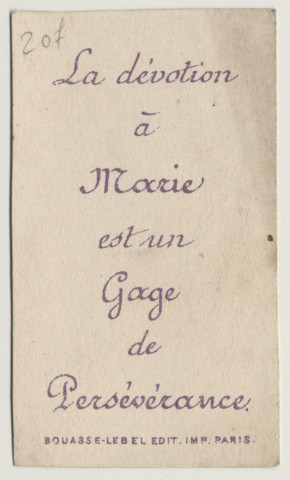 20f
La dévotion
à
Marie
est un
Gage
de
Persévérance.
BOUASSE-LEBEL EDIT. IMP. PARIS.